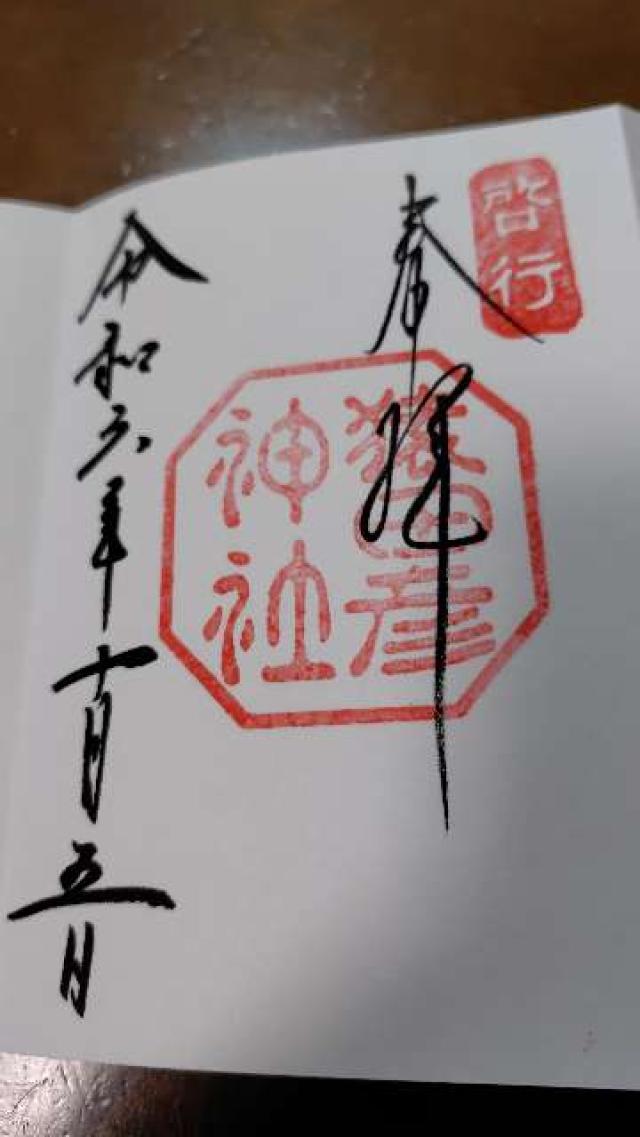 啓行
奉拝
猿田彦
神社
令和六年十月五日